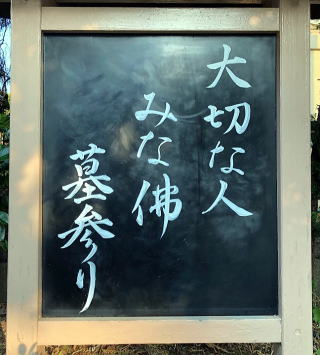 大切な人
みな佛
墓参り